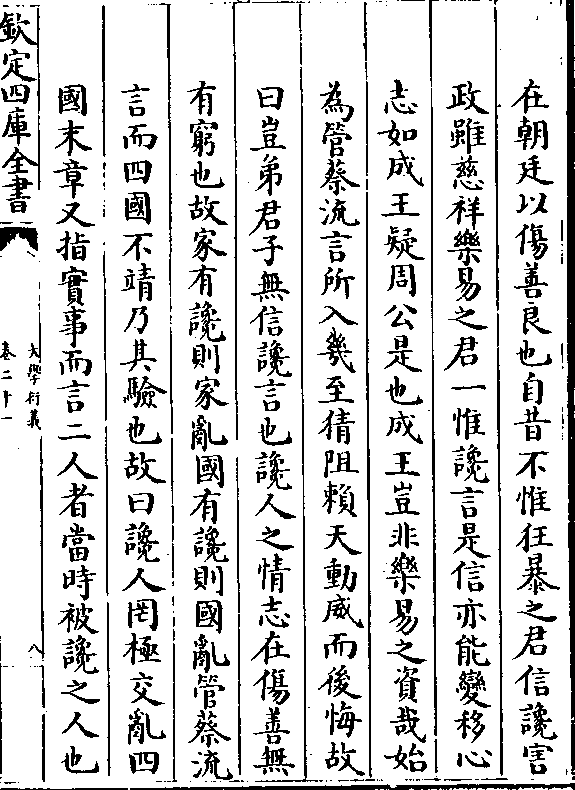 在朝廷以傷善良也自昔不惟狂暴之君信讒害
政雖慈祥樂易之君一惟讒言是信亦能變移心
志如成王疑周公是也成王豈非樂易之資哉始
為管蔡流言所入幾至猜阻賴天動威而後悔故
曰豈弟君子無信讒言也讒人之情志在傷善無
有窮也故家有讒則家亂國有讒則國亂管蔡流
言而四國不靖乃其驗也故曰讒人罔極交亂四
國末章又指實事而言二人者當時被讒之人也
欽定四庫全書
大學衍義
卷二十一
八